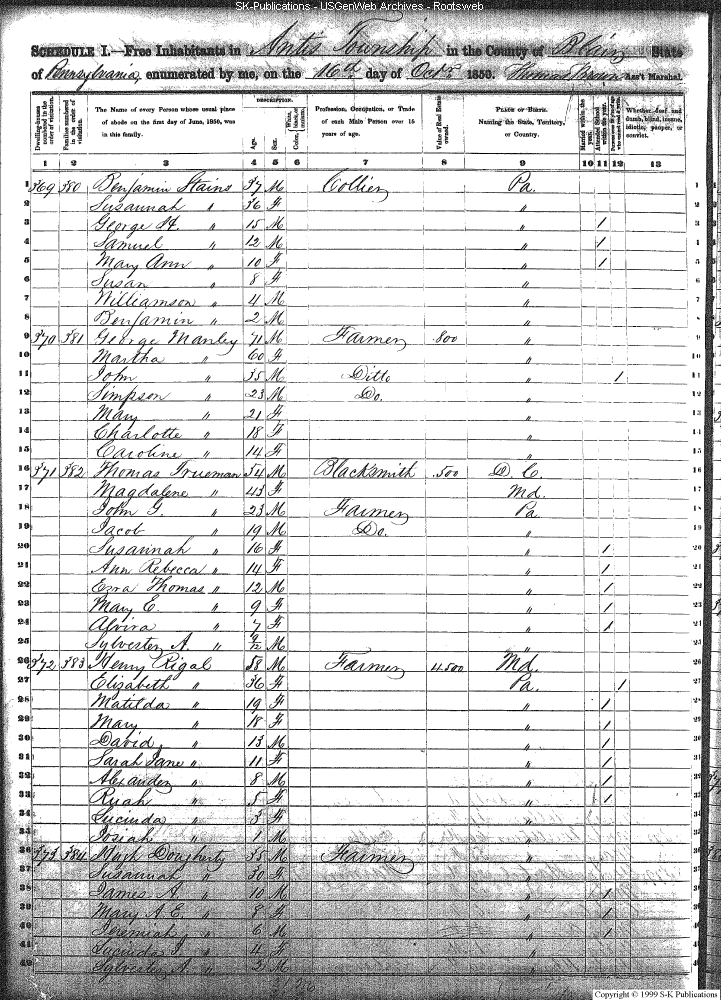 SK-Publications - USGenWeb Archives - Rootsweb
SCHEDULE I.—Free Inhabitants in Antis Township in the County of Blair State
of Pennsylvania, enumerated by me, on the 16th day of Octr 1850. Thomas Brown Ass't Marshal.
Dwelling-houses numbered in the order of visitation. Families numbered in the order of visitation. The Name of every Person whose usual place of abode on the first day of June, 1850, was in this family. DESCRIPTION. Age. Sex. Color, White, black, or mulatto. Profession, Occupation, or Trade of each Male Person over 15 years of age. Value of Real Estate owned. PLACE OF BIRTH. Naming the State, Territory, or Country. Married within the year. Attended School within the year. Whether deaf and dumb, blind, insane, idiotic, pauper, or convict.
1 2 3 4 5 6 7 8 9 10 11 12 13
1 369 380 Benjamin Stains 37 M Collier Pa. 1
2 Susannah " 36 F " 2
3 George H. " 15 M " / 3
4 Samuel " 12 M " / 4
5 Mary Ann " 10 F " / 5
6 Susan " 8 F " 6
7 Williamson " 4 M " 7
8 Benjamin " 2 M " 8
9 370 381 George Manley 71 M Farmer 800 " 9
10 Martha " 60 F " 10
11 John " 35 M Ditto " / 11
12 Simpson " 23 M Do. " 12
13 Mary " 21 F " 13
14 Charlotte " 18 F " 14
15 Caroline " 14 F " 15
16 371 382 Thomas Trueman 54 M Blacksmith 500 D. C. 16
17 Magdalene " 43 F Md. 17
18 John G. " 23 M Farmer Pa 18
19 Jacob " 19 M Do. " 19
20 Susannah " 16 F " / 20
21 Ann Rebecca " 14 F " / 21
22 Ezra Thomas " 12 M " / 22
23 Mary E. " 9 F " / 23
24 Alvira " 7 F " / 24
25 Sylvester A. " 9/12 M " 25
26 372 383 Henry Rigal 58 M Farmer 4500 Md. 26
27 Elizabeth " 36 F Pa. / 27
28 Matilda " 19 F " / 28
29 Mary " 18 F " / 29
30 David " 13 M " / 30
31 Sarah Jane " 11 F " / 31
32 Alexander " 8 M " / 32
33 Ruah " 5 F " / 33
34 Lucinda " 3 F " 34
35 Josiah " 1 M " 35
36 373 384 Hugh Dougherty 35 M Farmer " 36
37 Susannah " 30 F " 37
38 James A. " 10 M " / 38
39 Mary A. E. " 8 F " / 39
40 Jeremiah " 6 M " / 40
41 Lucinda J. " 4 F " 41
42 Sylvester A. " 2 M " 42
Copyright © 1999 S-K Publications